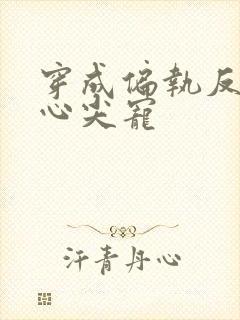 穿成偏執反
心尖寵
汗青丹心